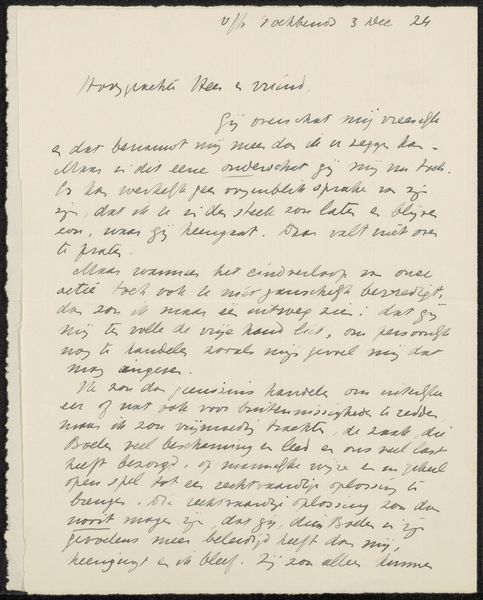 3 Dec 24
Hooggeachte Heer en vriend,
Gij overschat mij vreeselijk
en dat benauwt mij meer dan ik u zeggen kan.
Maar in dit eene onderschat gij mij nu toch.
Er kan werkelijk geen oogenblik sprake van zijn
zijn, dat ik u in den steek zou laten en blijven
zou, waar gij heengaat. Daar valt niet over
te praten.
Maar wanneer het eindverloop van onze
actie toch ook u niet ganschelijk bevredigt,
dan zou ik maar één uitweg zien: dat gij
mij ten volle de vrije hand liet, om persoonlijk
nog te handelen zooals mijn gevoel mij dat
mag ingeven.
Ik zou dan geenszins handelen om uiterlijke
eer of wat ook voor buitenmissigheden te redden
maar ik zou vrijmoedig trachten, de zaak, die
Boelen veel beschaming en leed en ons veel last
heeft bezorgd, op mannelijke wijze en in geheel
open spel tot een rechtvaardige oplossing te
brengen. Die rechtvaardige oplossing zou dan
nooit mogen zijn, dat gij, dien Boelen in zijn
gevoelens meer beleedigd heeft dan mij,
heenging en ik bleef. Zij zou alleen kunnen